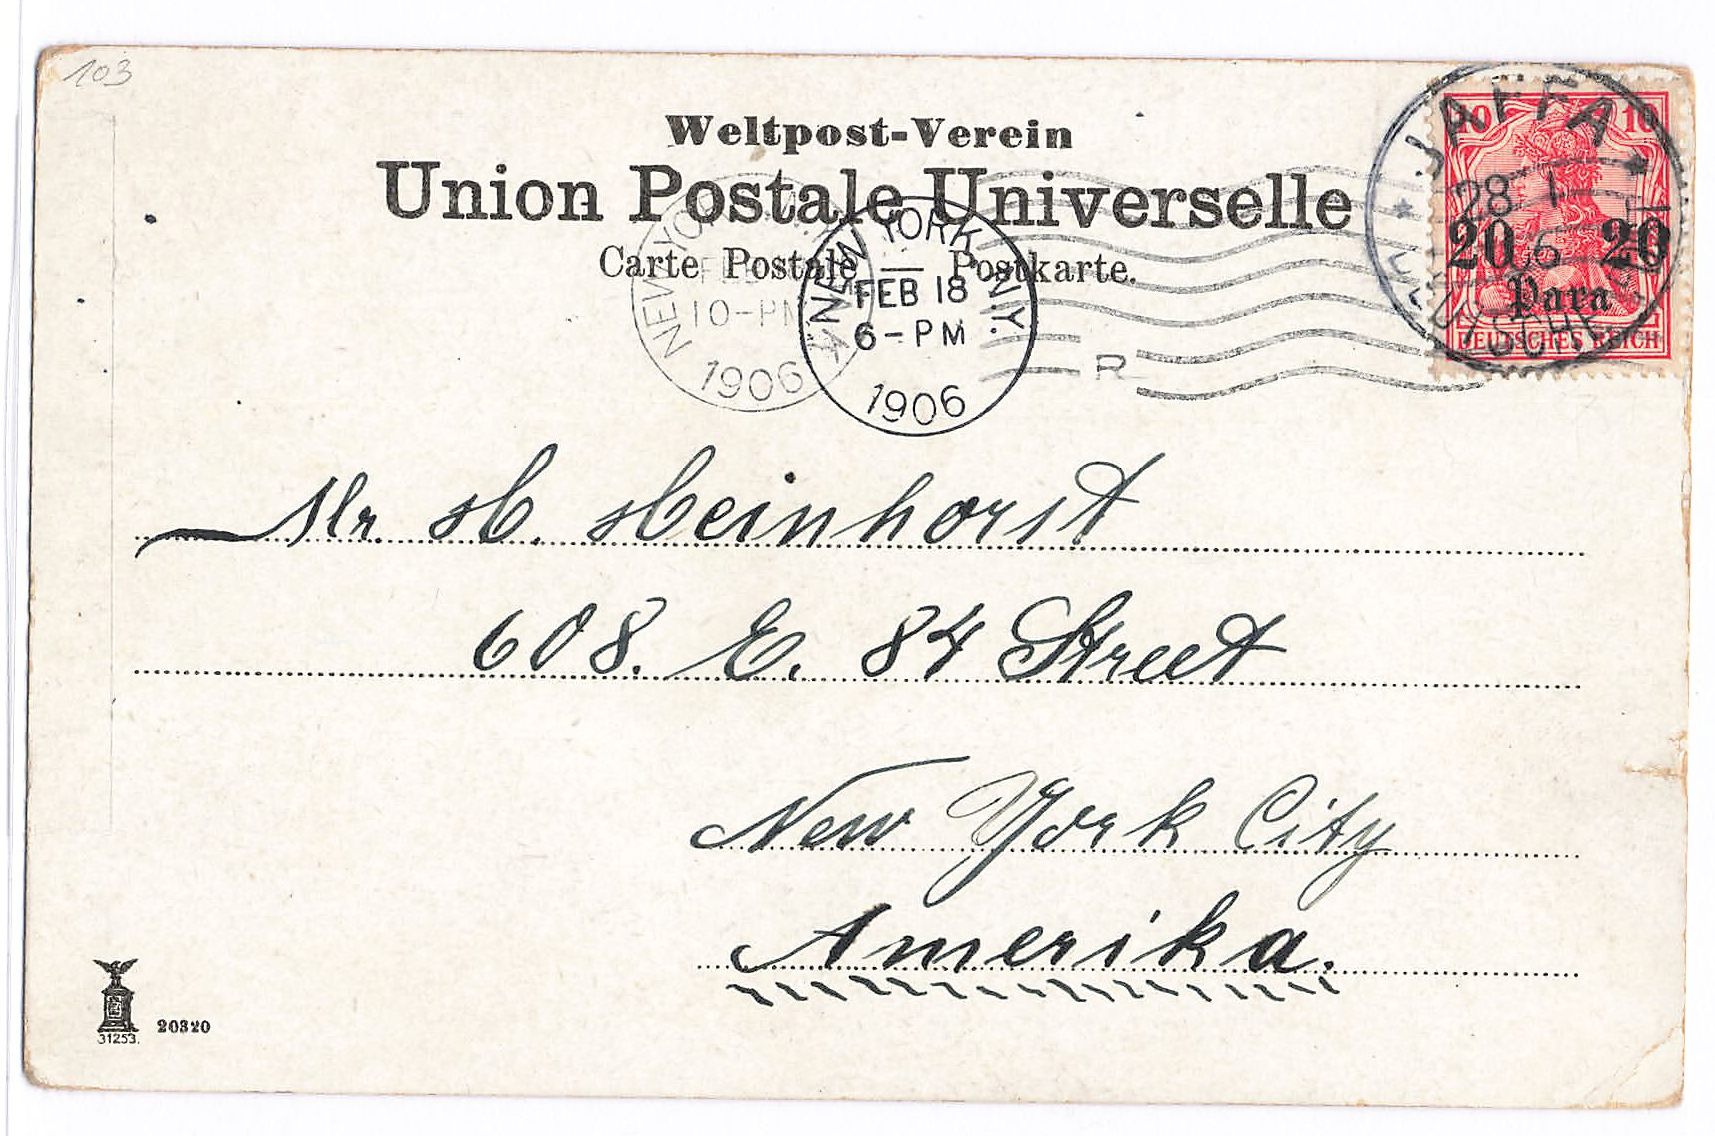 103
Weltpost-Verein
Union Postale Universelle
Carte Postale — Postkarte.
NEW YORK, N.Y.
FEB
10-PM
1906
NEW YORK, N.Y.
FEB 18
6-PM
1906
R
JAFFA
28 1
6
DEUTSCHE POST
10 10
20 20
Para
DEUTSCHES REICH
Mr. H. Heinhorst
608. E. 84 Street
New York City
Amerika.
31253.
20320